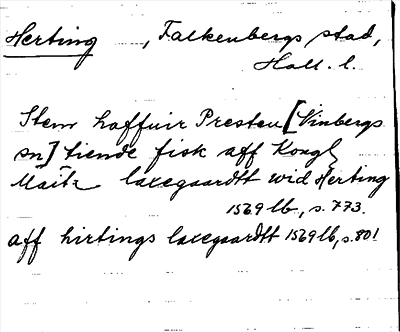 Herting , Falkenbergs stad,
Hall. l.
Item haffuir Presten [Vinbergs
sn] tiende fisk aff Kongl
Maitz laxegaardtt wid Herting
1569 lb, s. 773.
aff hirtings laxegaardtt 1569 lb, s. 801